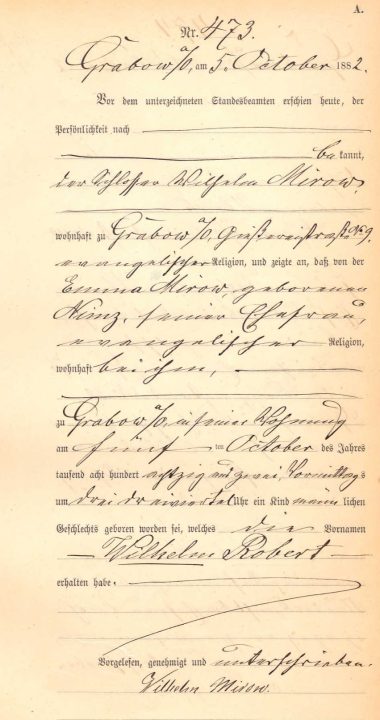 A.
Nr. 473.
Grabow a/O, am 5. October 1882.
Vor dem unterzeichneten Standesbeamten erschien heute, der
Persönlichkeit nach
bekannt,
der Schlosser Wilhelm Mirow,
wohnhaft zu Grabow a/O, Gießereistraße No 9.
evangelischer Religion, und zeigte an, daß von der
Emma Mirow, geborenen
Kunz, seiner Ehefrau,
evangelischer Religion,
wohnhaft bei ihm,
zu Grabow a/O, in seiner Wohnung
am fünf ten October des Jahres
tausend acht hundert achtzig und zwei Vormittags
um drei dreiviertel Uhr ein Kind männlichen
Geschlechts geboren worden sei, welches die Vornamen
Wilhelm Robert
erhalten habe.
Vorgelesen, genehmigt und unterschrieben.
Wilhelm Mirow.